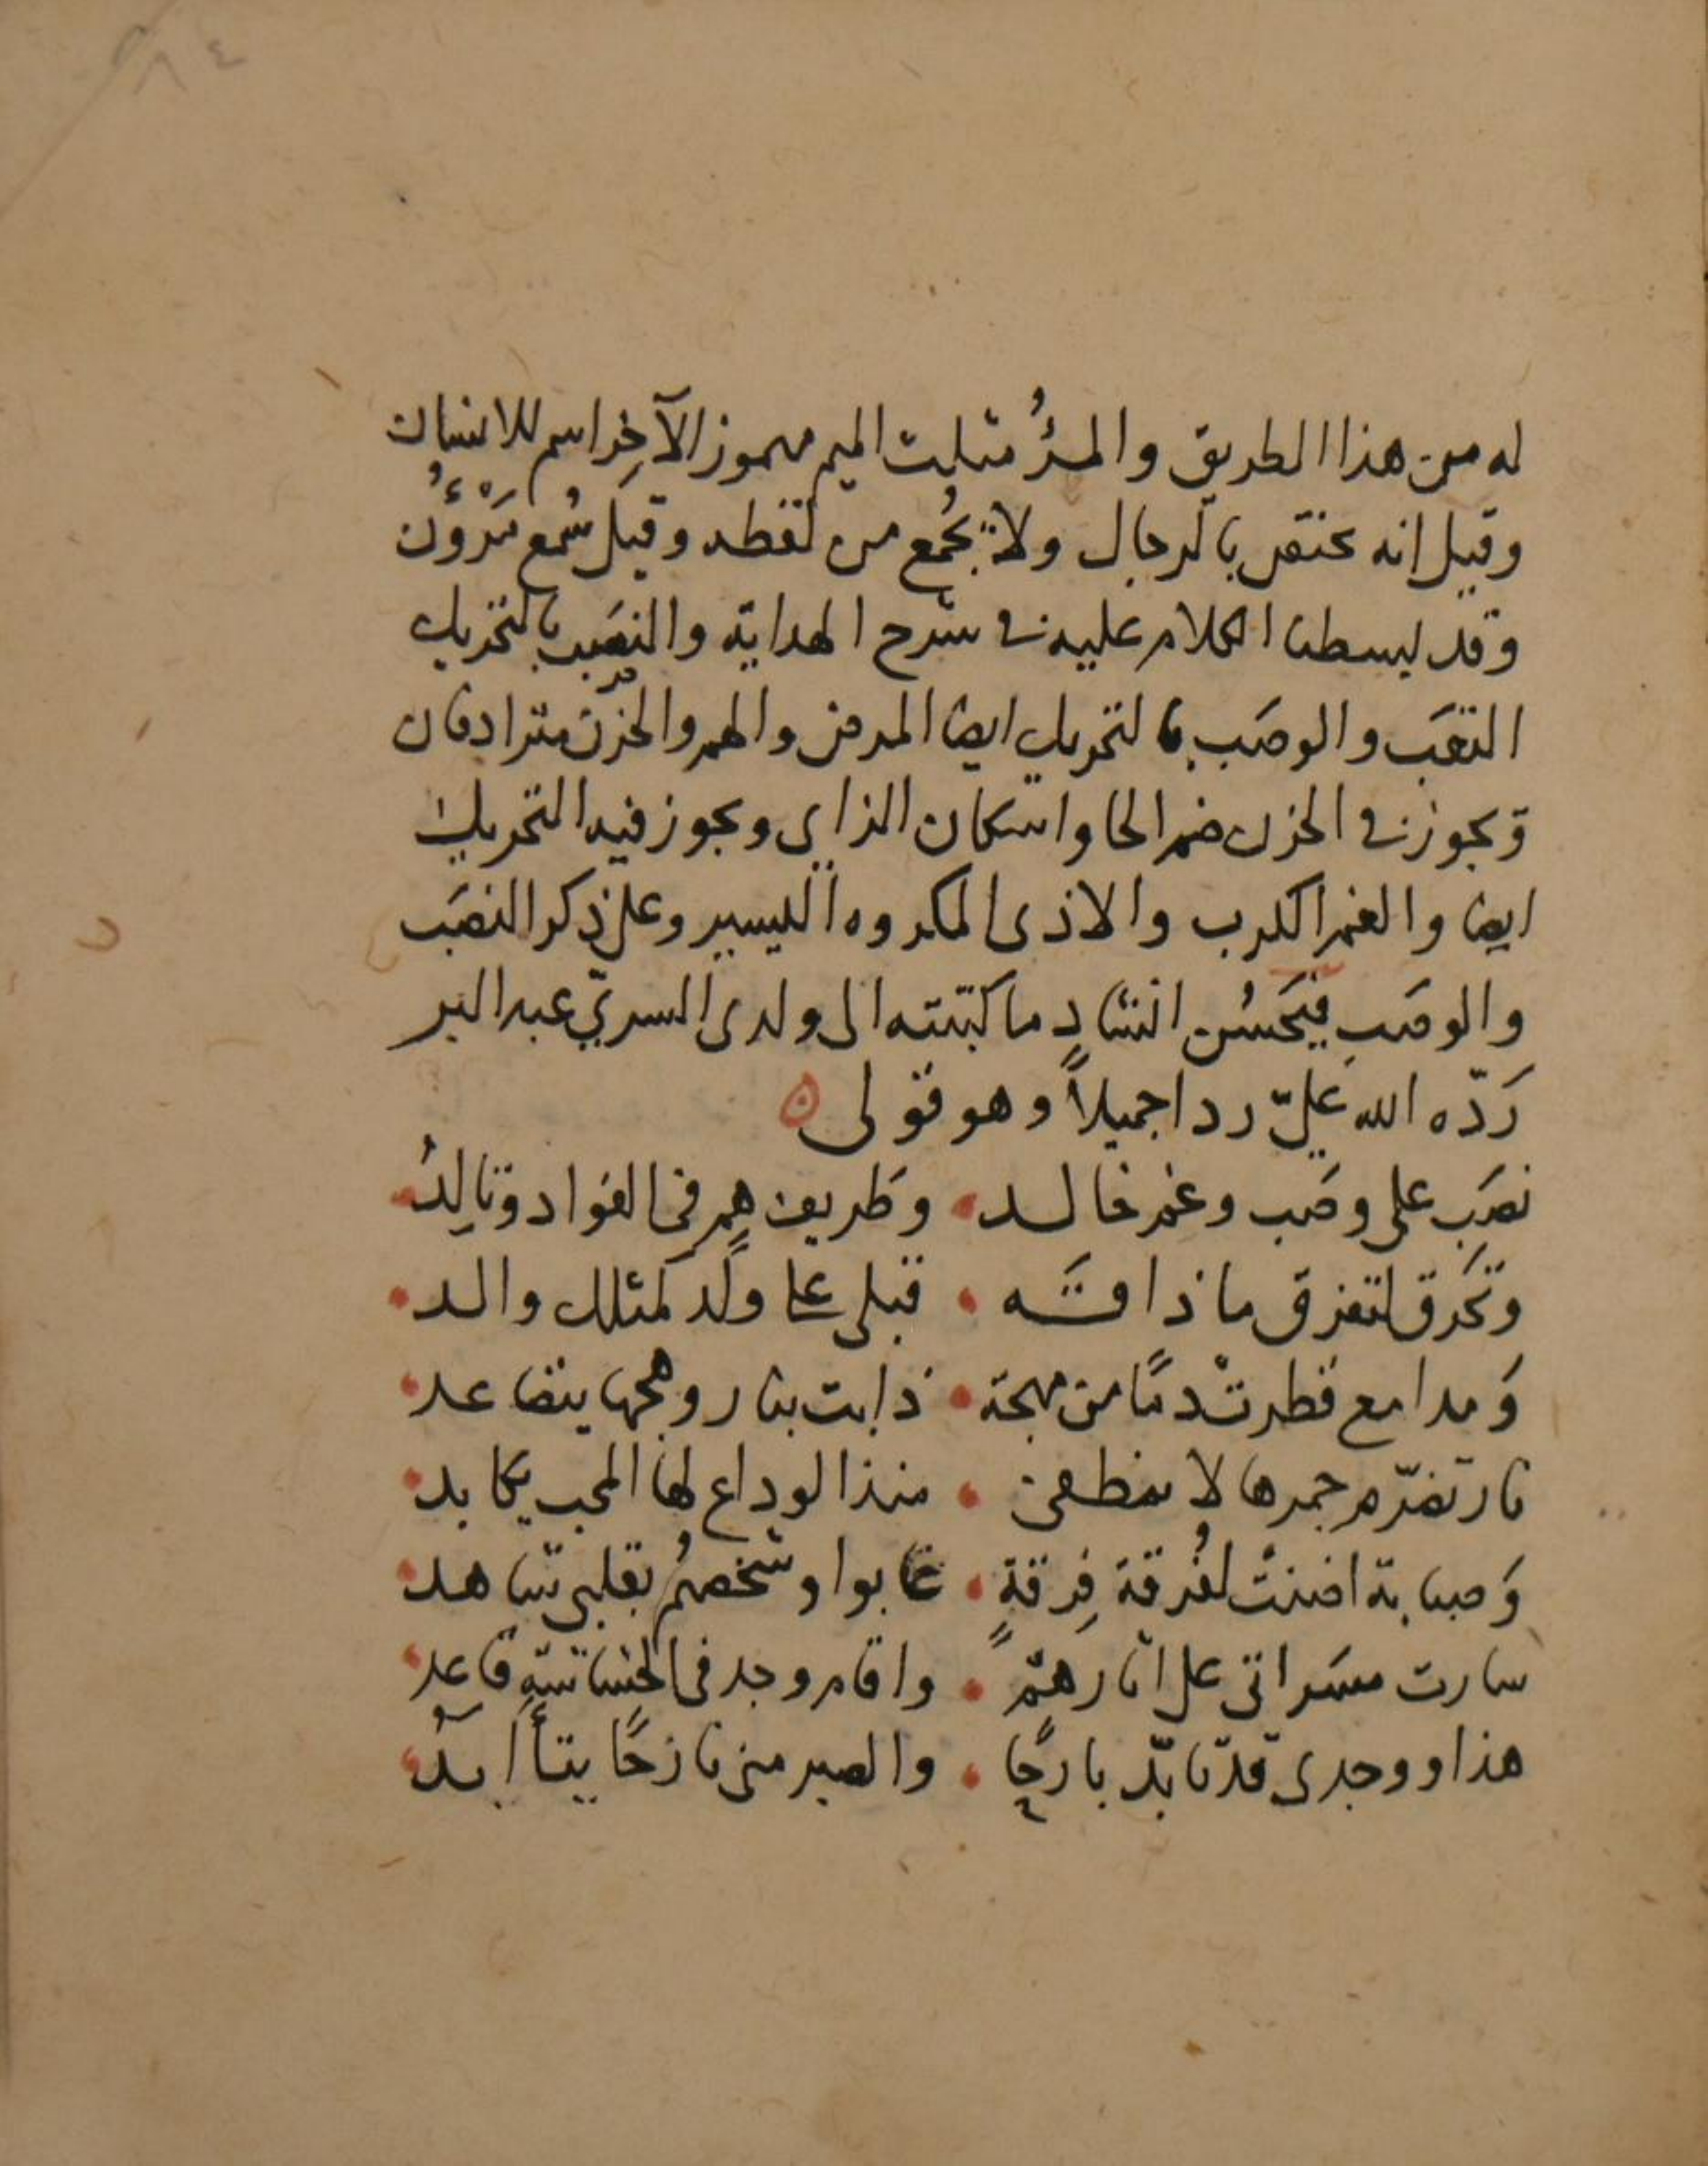 له من هذا الطريق والمرُؤ مثلث الميم مهموز الآخِر اسم للانسان
وقيل انه مختص بالرجال ولا يُجمع من لفظه وقيل سُمع مَرْؤُن
وقد بسطنا الكلام عليه في شرح الهداية والنصَب بالتحريك
التعَب والوصَب بالتحريك ايضا المرض والهم والحزن مترادفان
ويجوز في الحزن ضم الحا واسكان الزاي ويجوز فيه التحريك
ايضا والغم الكرب والاذى المكروه اليسير وعلى ذكر النصَب
والوصَبِ فيَحسُن انشاد ما كتبته الى ولدى السريّ عبد البر
رَدّه الله عليّ ردا جميلاً وهو قولى
نصَب على وصَب وغم خالد وطريف همٍ فى الفواد وتالِدُ
وتحَرق لتفرق ما ذاقَه قبلى على ولَد كمثلك والد
وَمدامع قطرتْ دمًا من مهجة ذابت بنار وهجها يتصاعد
نار تضرّم جمرها لا ينطفى منذ الوداع لها المحب يكابد
وَصبابة اضنتْ لفُرقة فِرقةٍ غابوا وشخصهُم بقلبى شاهد
سارت مسَراتى على اثارهمْ واقام وجد فى الحشاشةِ قاعد
هذا ووجدى قد تأبّد بارحًا والصبر منى نازحًا يتأبدُ